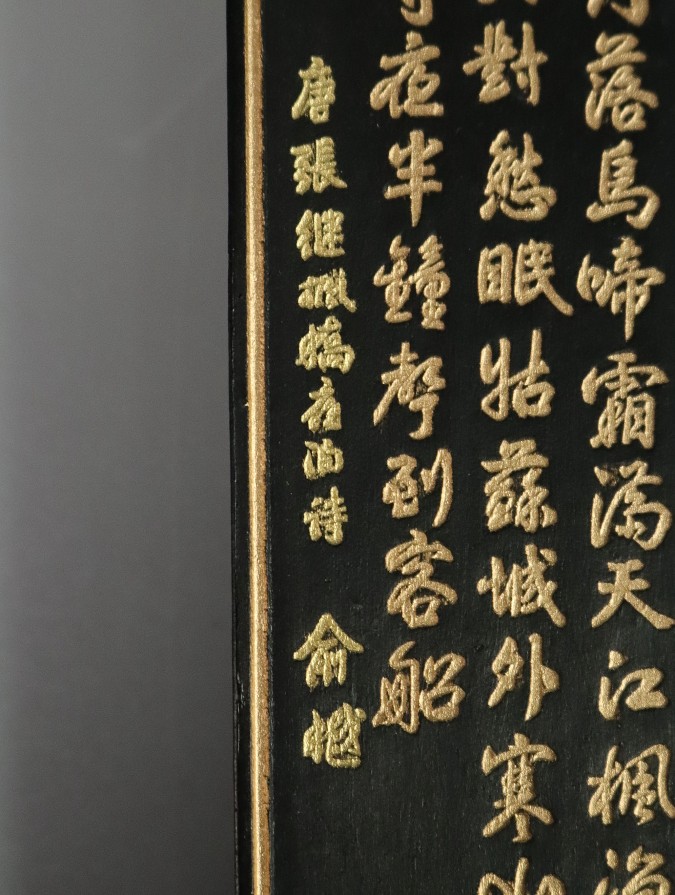 落烏啼霜滿天江楓漁
對愁眠姑蘇城外寒山
寺夜半鐘聲到客船
唐張继楓橋夜泊诗 俞樾